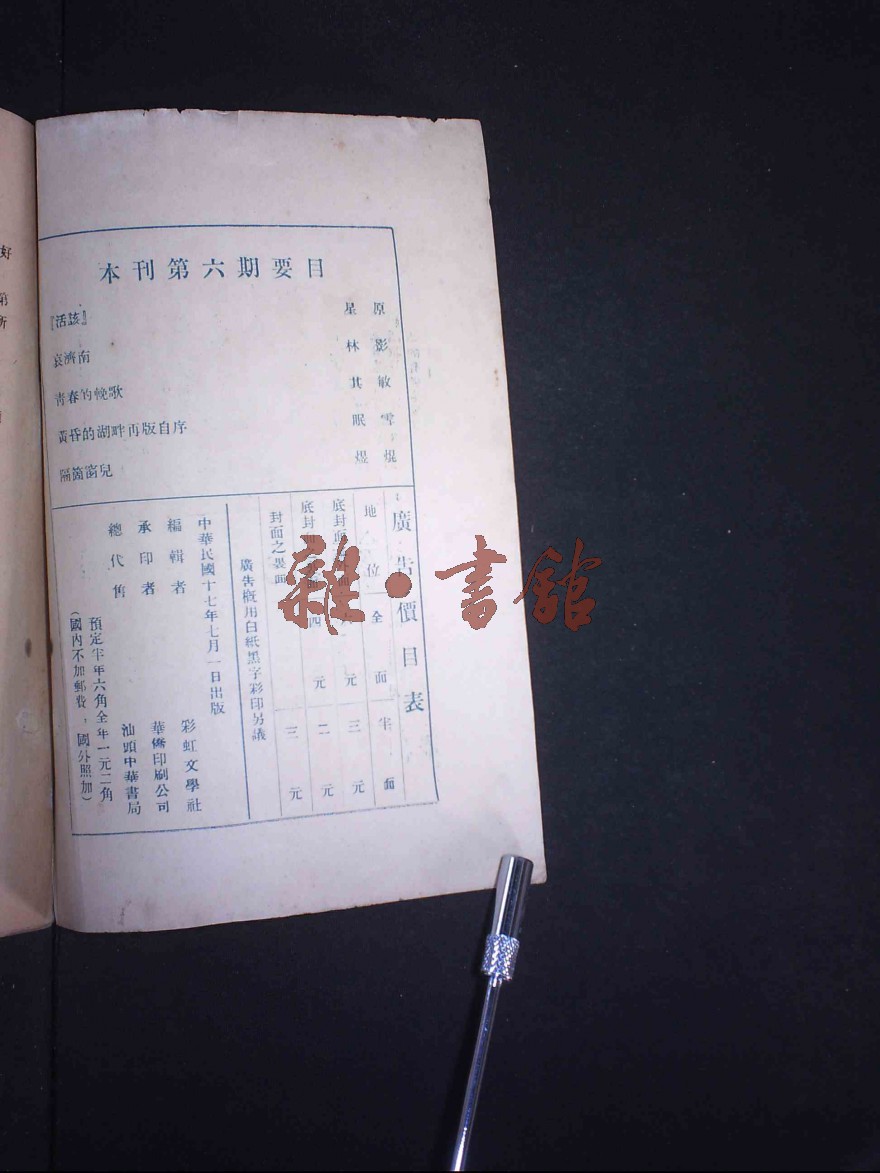 本刊第六期要目
『活該』 星原
哀濟南 林影
靑春的輓歌 其敏
黃昏的湖畔再版自序 眠雪
隔箇窗兒 煜焜
廣告價目表
地位 全面 半面
底封面外面 元 三元
底封面 四元 二元
封面之裏面 三元
廣告概用白紙黑字彩印另議
中華民國十七年七月一日出版
編輯者 彩虹文學社
承印者 華僑印刷公司
總代售 汕頭中華書局
預定半年六角全年一元二角
(國內不加郵費,國外照加)
雜·書館
好
第
所